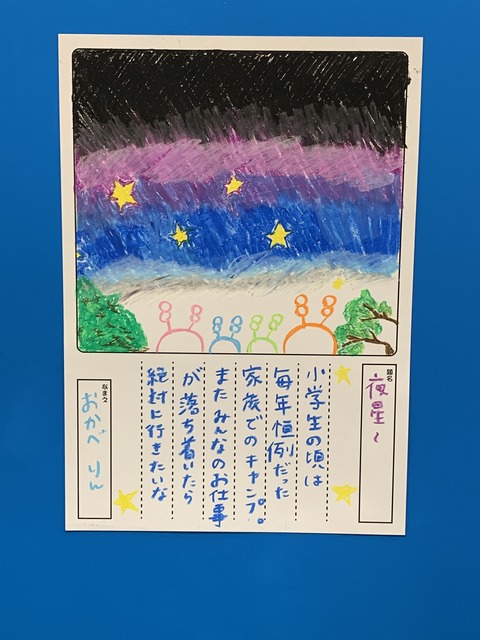 題名
夜星〜
小学生の頃は
毎年恒例だった
家族でのキャンプ。
またみんなのお仕事
が落ち着いたら
絶対に行きたいな
なまえ
おかべ りん